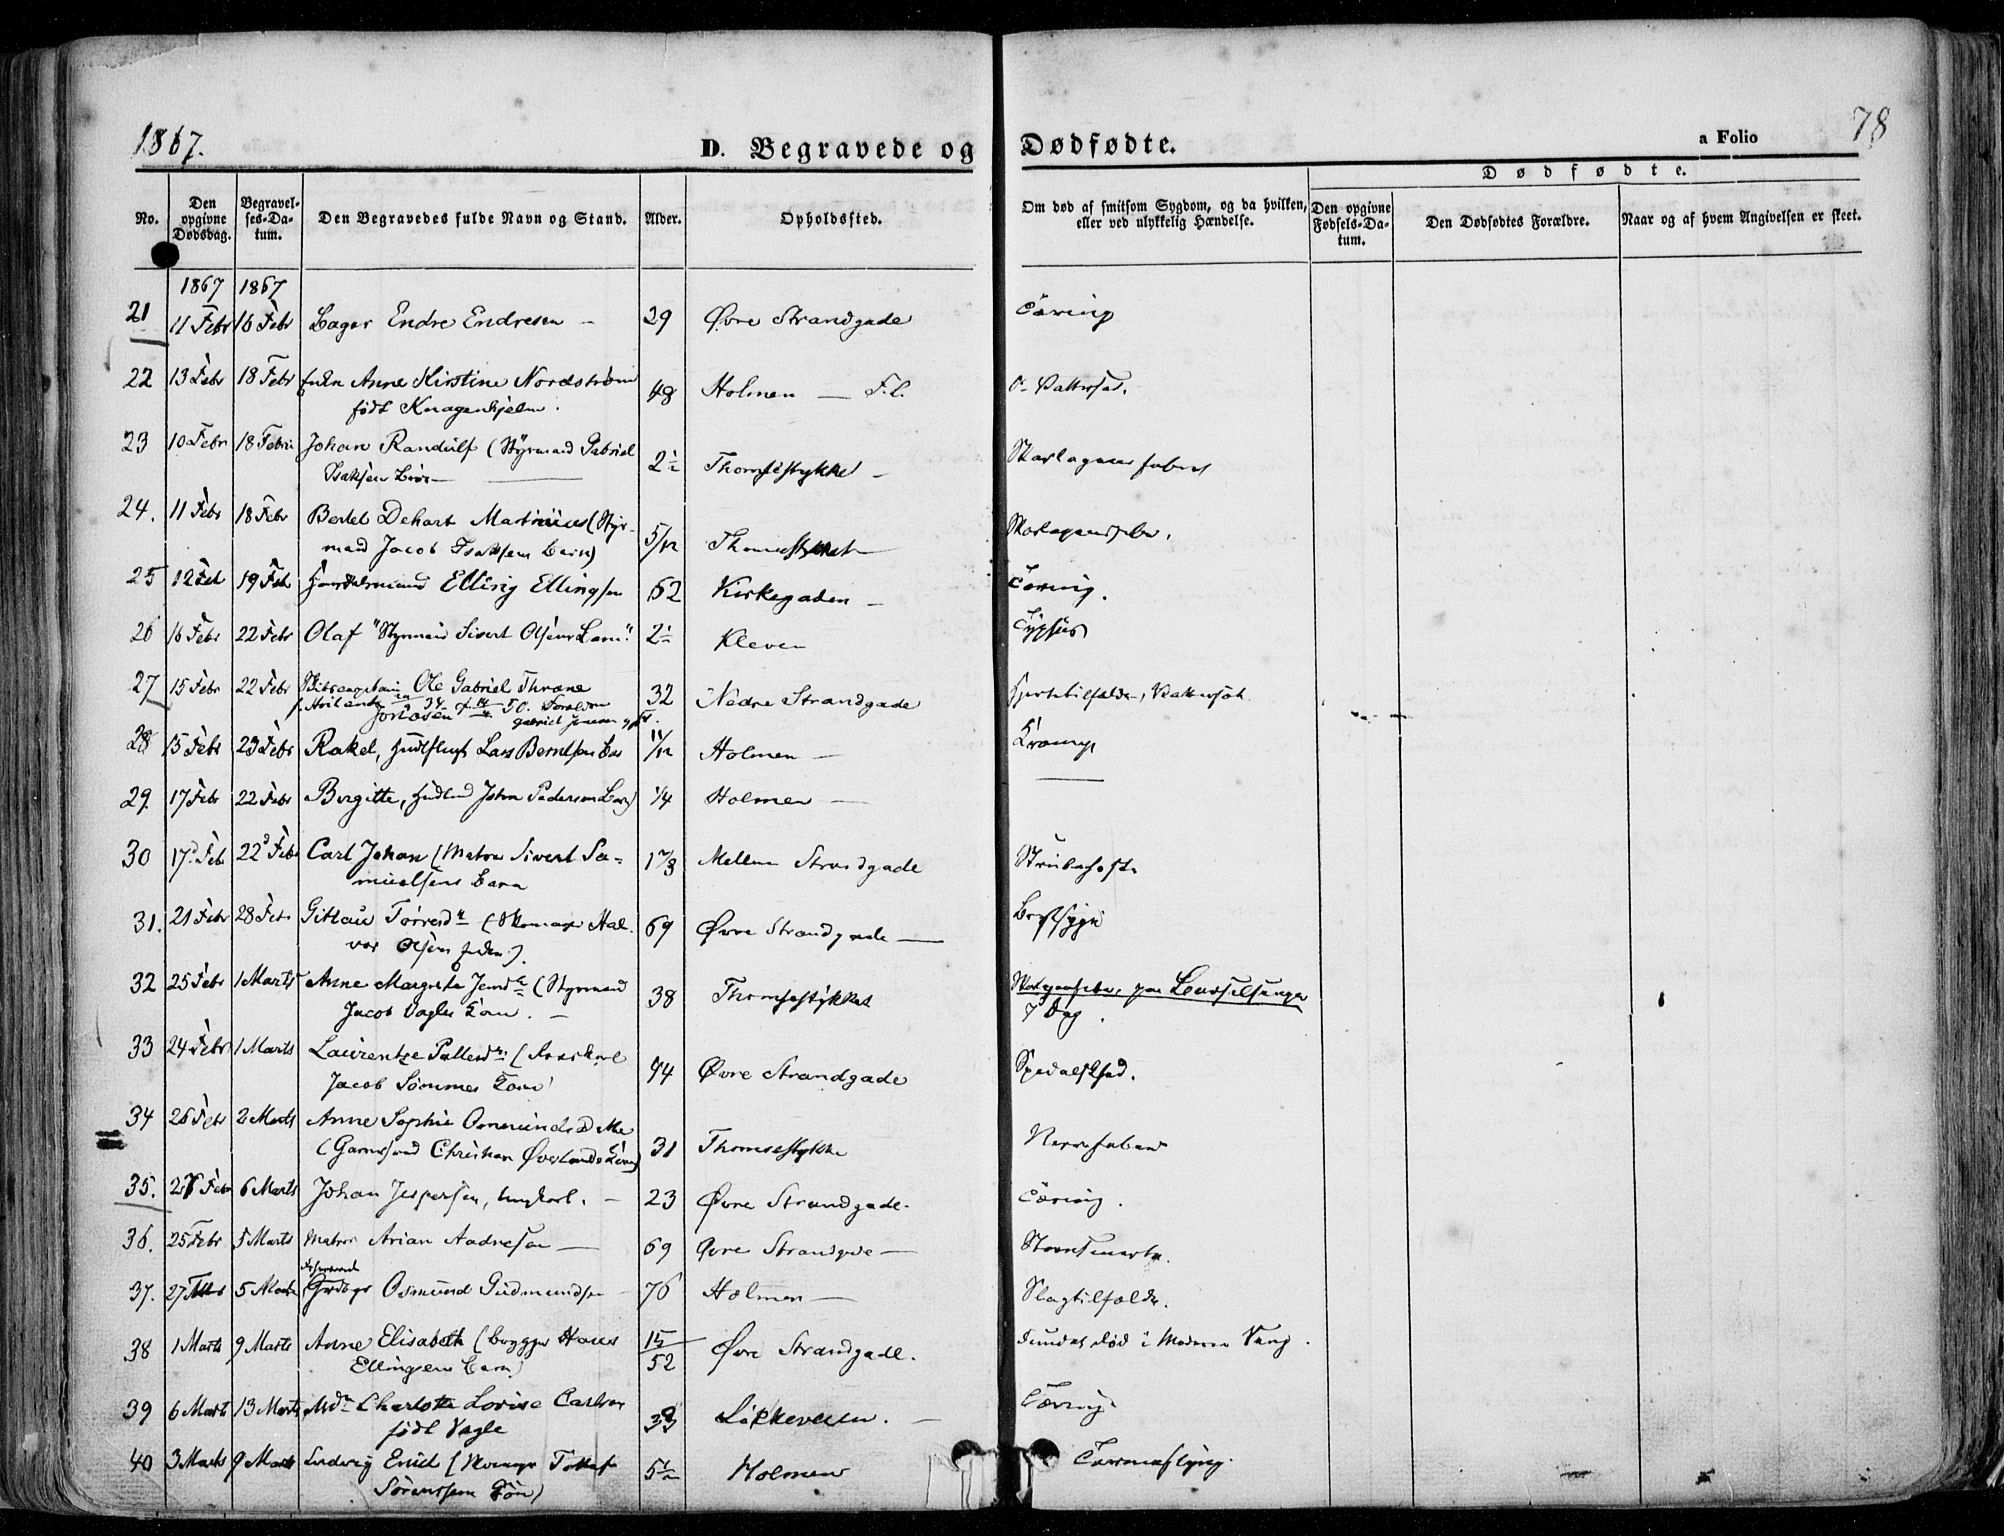 1867.
D. Begravede og Dødfødte.
a Folio 78
No.
Den opgivne Dødsdag.
Begravelses-Datum.
Den Begravedes fulde Navn og Stand.
Alder.
Opholdssted.
Om død af smitsom Sygdom, og da hvilken, eller ved ulykkelig Hændelse.
Dødfødte.
Den opgivne Fødsels-Datum.
Den Dødfødtes Forældre.
Naar og af hvem Angivelsen er skeet.
1867 1867
21 11 Febr 16 Febr Bager Endre Endresen — 29 Øvre Strandgade Tæring
22 13 Febr 18 Febr Enken Anne Kirstine Nordstrøm 48 Holmen — F.l. Vattersot.
født Knagenhjelm.
23 10 Febr 18 Febr Johan Randulf (Styrmand Gabriel 2½ Thomsestykket — Skarlagensfeber
Isaksen Barn —
24. 11 Febr 18 Febr Bertel Dehart Martinius (Styr- 5/12 Thomsestykket Skarlagensfeber.
mand Jacob Isaksens Barn)
25 12 Feb 19 Feb Elling Ellingsen 62 Kirkegaden — Tæring.
26 16 Febr 22 Febr Olaf "Styrmand Sivert Olsens Barn". 2½ Kleven Typhus
27 15 Febr 22 Febr Ole Gabriel Thrane 32 Nedre Strandgade Hjertetilfælde, Vattersot
28 15 Febr 23 Febr Rakel, Lars Berntsen Barn 11/12 Holmen — Krampe
29. 17 Febr 22 Febr Birgitte, John Pedersen Barn) ¼ Holmen —
30 17d Feb 22d Feb Carl Johan (Matros Sivert Sa- 1 2/3 Mellem Strandgade Strubehoste
muelsens Barn
31. 21 Febr 28 Feb Gitlau Torresdr (Skomager Hal- 69 Øvre Strandgade — Brystsyge
vor Olsens Enke.)
32 25 Febr 1 Marts Anne Margrete Jensdr (Styrmand 38 Thomsestykket Skarlagensfeber, paa Barselsengen
Jacob Vagles Kone. — 7 Dag.
33 24 Febr 1 Marts Laurentze Pallesdr ( 44 Øvre Strandgade Spedalskhed.
Jacob Sømmes Kone)
34 26 Febr 2 Marts Anne Sophie Osmundsd 31 Thomsestykket Nervefeber
( Christian Øverlands Kone)
35. 27 Febr 6 Marts Johan Jespersen, Ungkarl. — 23 Øvre Strandgade. Tæring.
36. 25 Febr 5 Marts Matros Arian Aadnesen — 69 Øvre Strandgade — Steensmerte.
37. 27 5 Marts Osmund Gudmundsen — 76 Holmen — Slagtilfælde.
38 1 Marts 9 Marts Anne Elisabeth (Brygger Hans 15/52 Øvre Strandgade. Fundet død i Moderens Seng.
Ellingsens Barn)
39 6 Marts 13 Marts Md Charlotte Lovise Carlsen 33 Løkkeveien. — Tæring.
født Vagle
40 3 Marts 9 Marts Ludvig Emil ( Tollef 5½ Holmen
Sørenssens Søn)